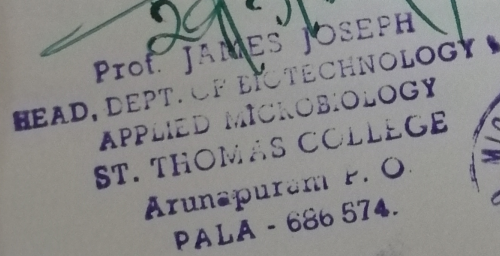 Prof. JAMES JOSEPH
HEAD, DEPT. OF BIOTECHNOLOGY &
APPLIED MICROBIOLOGY
ST. THOMAS COLLEGE
Arunapuram P. O.
PALA - 686 574.